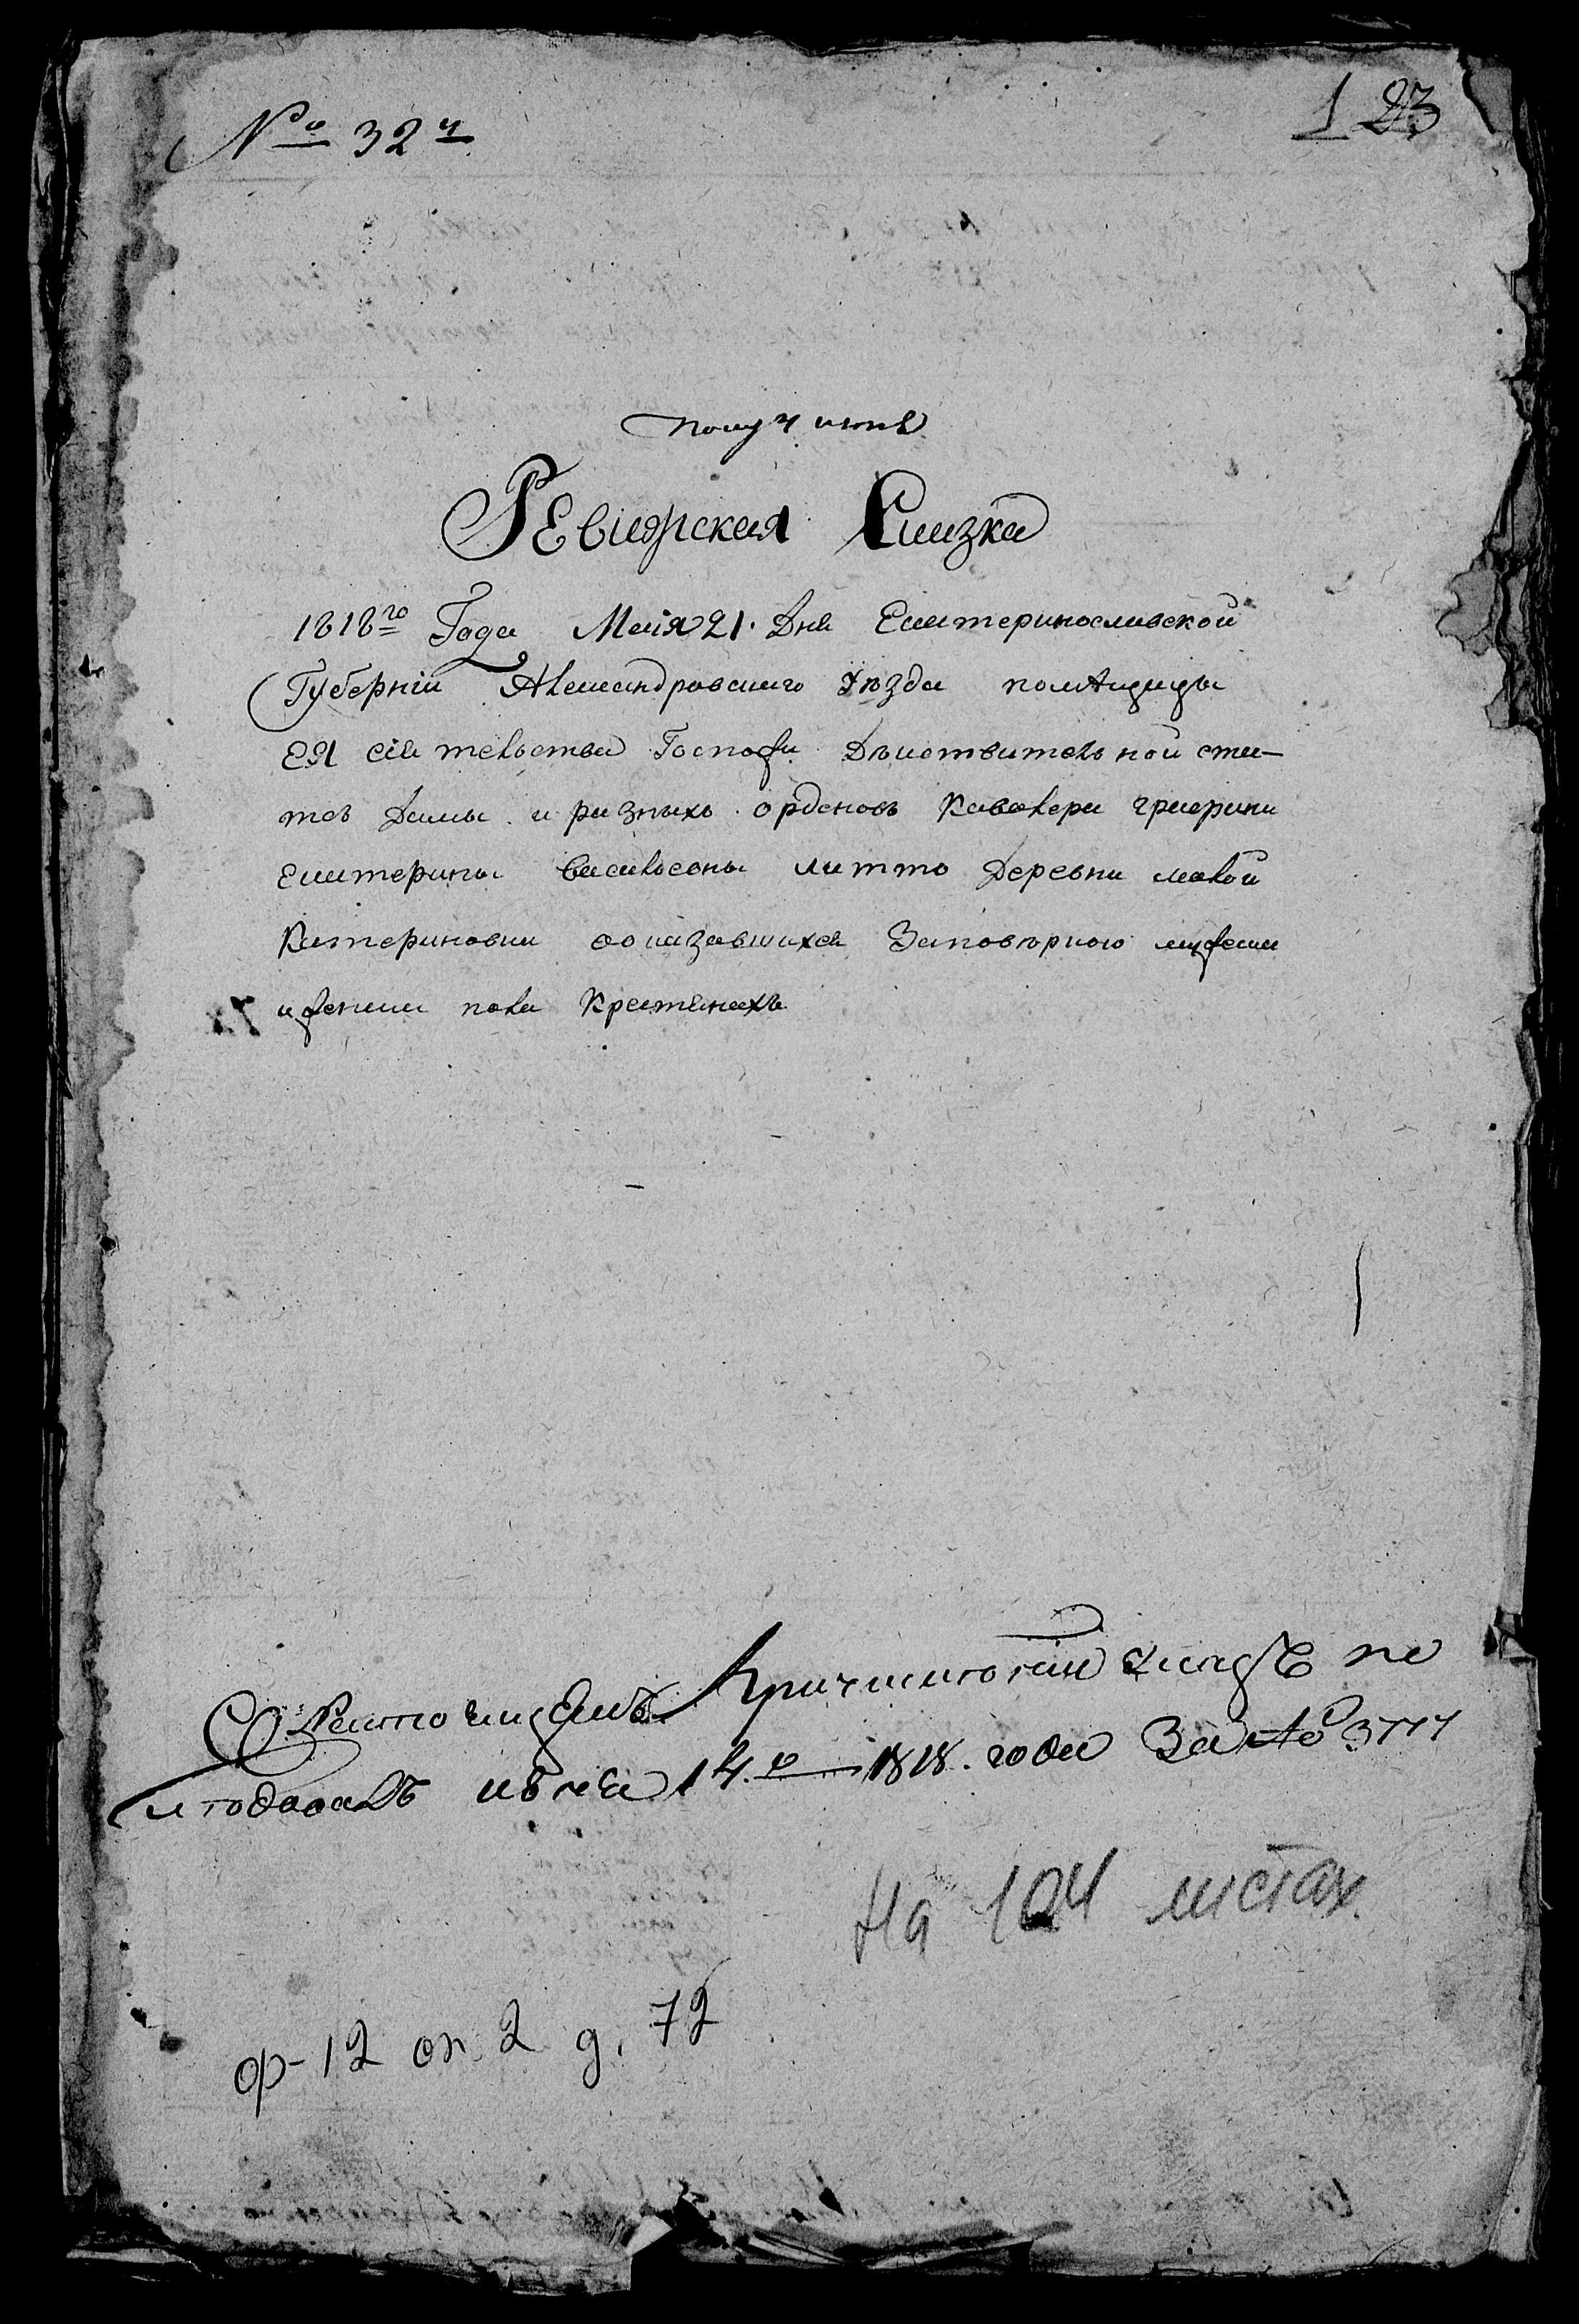 № 32й
1 23
полу 4 июня
Ревизская Сказка
1818го Года Маія 21. Дня Екатеринославской
Губерніи Александровскаго уѣзда помѣщицы
ЕЯ сіятельства Госпожи Дѣйствительной ста-
тсъ Дамы и разныхъ орденовъ Кавалера графини
Екатерины Васильевны литто Деревни малой
Катериновки оказавшихся Заповѣркою мужеска
и женска пола Крестьянахъ
1818. года За №
На 104 листах
ф-12 оп. 2 д. 72